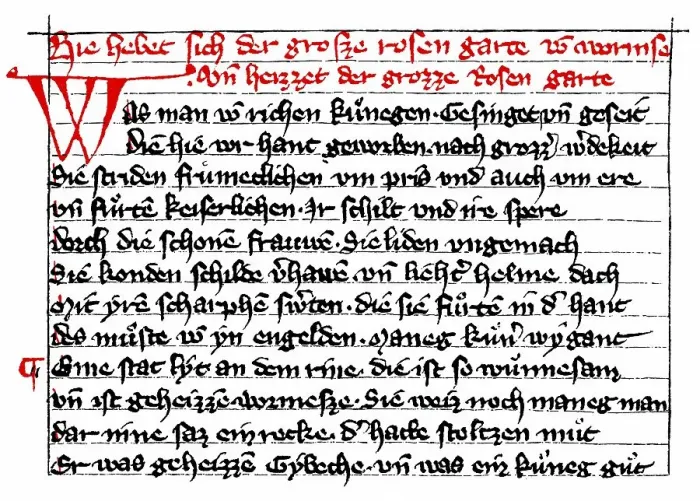 Hie hebet sich der grosze rosen garte vō wormse
Vn̄ heizzet der grozze Rosen garte
Was man vō richen kuͤnegen · Gesinget vn̄ geseit
Die hie vor hant geworben · nach grozzˀ wˀdekeit
Sie striden frumeclichen vm pris vnd auch vm ere
vn̄ fuͤrtē keiserlichen · Ir schilt vnd ire spere
dorch die schonē frauwē · Sie liden vngemach
Sie konden schilde vˀhauwē vn̄ liehtˀ helme dach
Mit yrē scharphē swˀten · die sie fuͤrtē in dˀ hant
des muͤste vō yn engelden · Maneg kuͤnˀ wygant
¶ Eine stat lyt an dem rine · die ist so wunnesam
vn̄ ist geheizzē wormesze · Sie weiz noch maneg man
dar nine saz ein recke · dˀ hatte stoltzen muͤt
Er was geheizzē Gybeche · vn̄ was ein kuͤneg guͤt